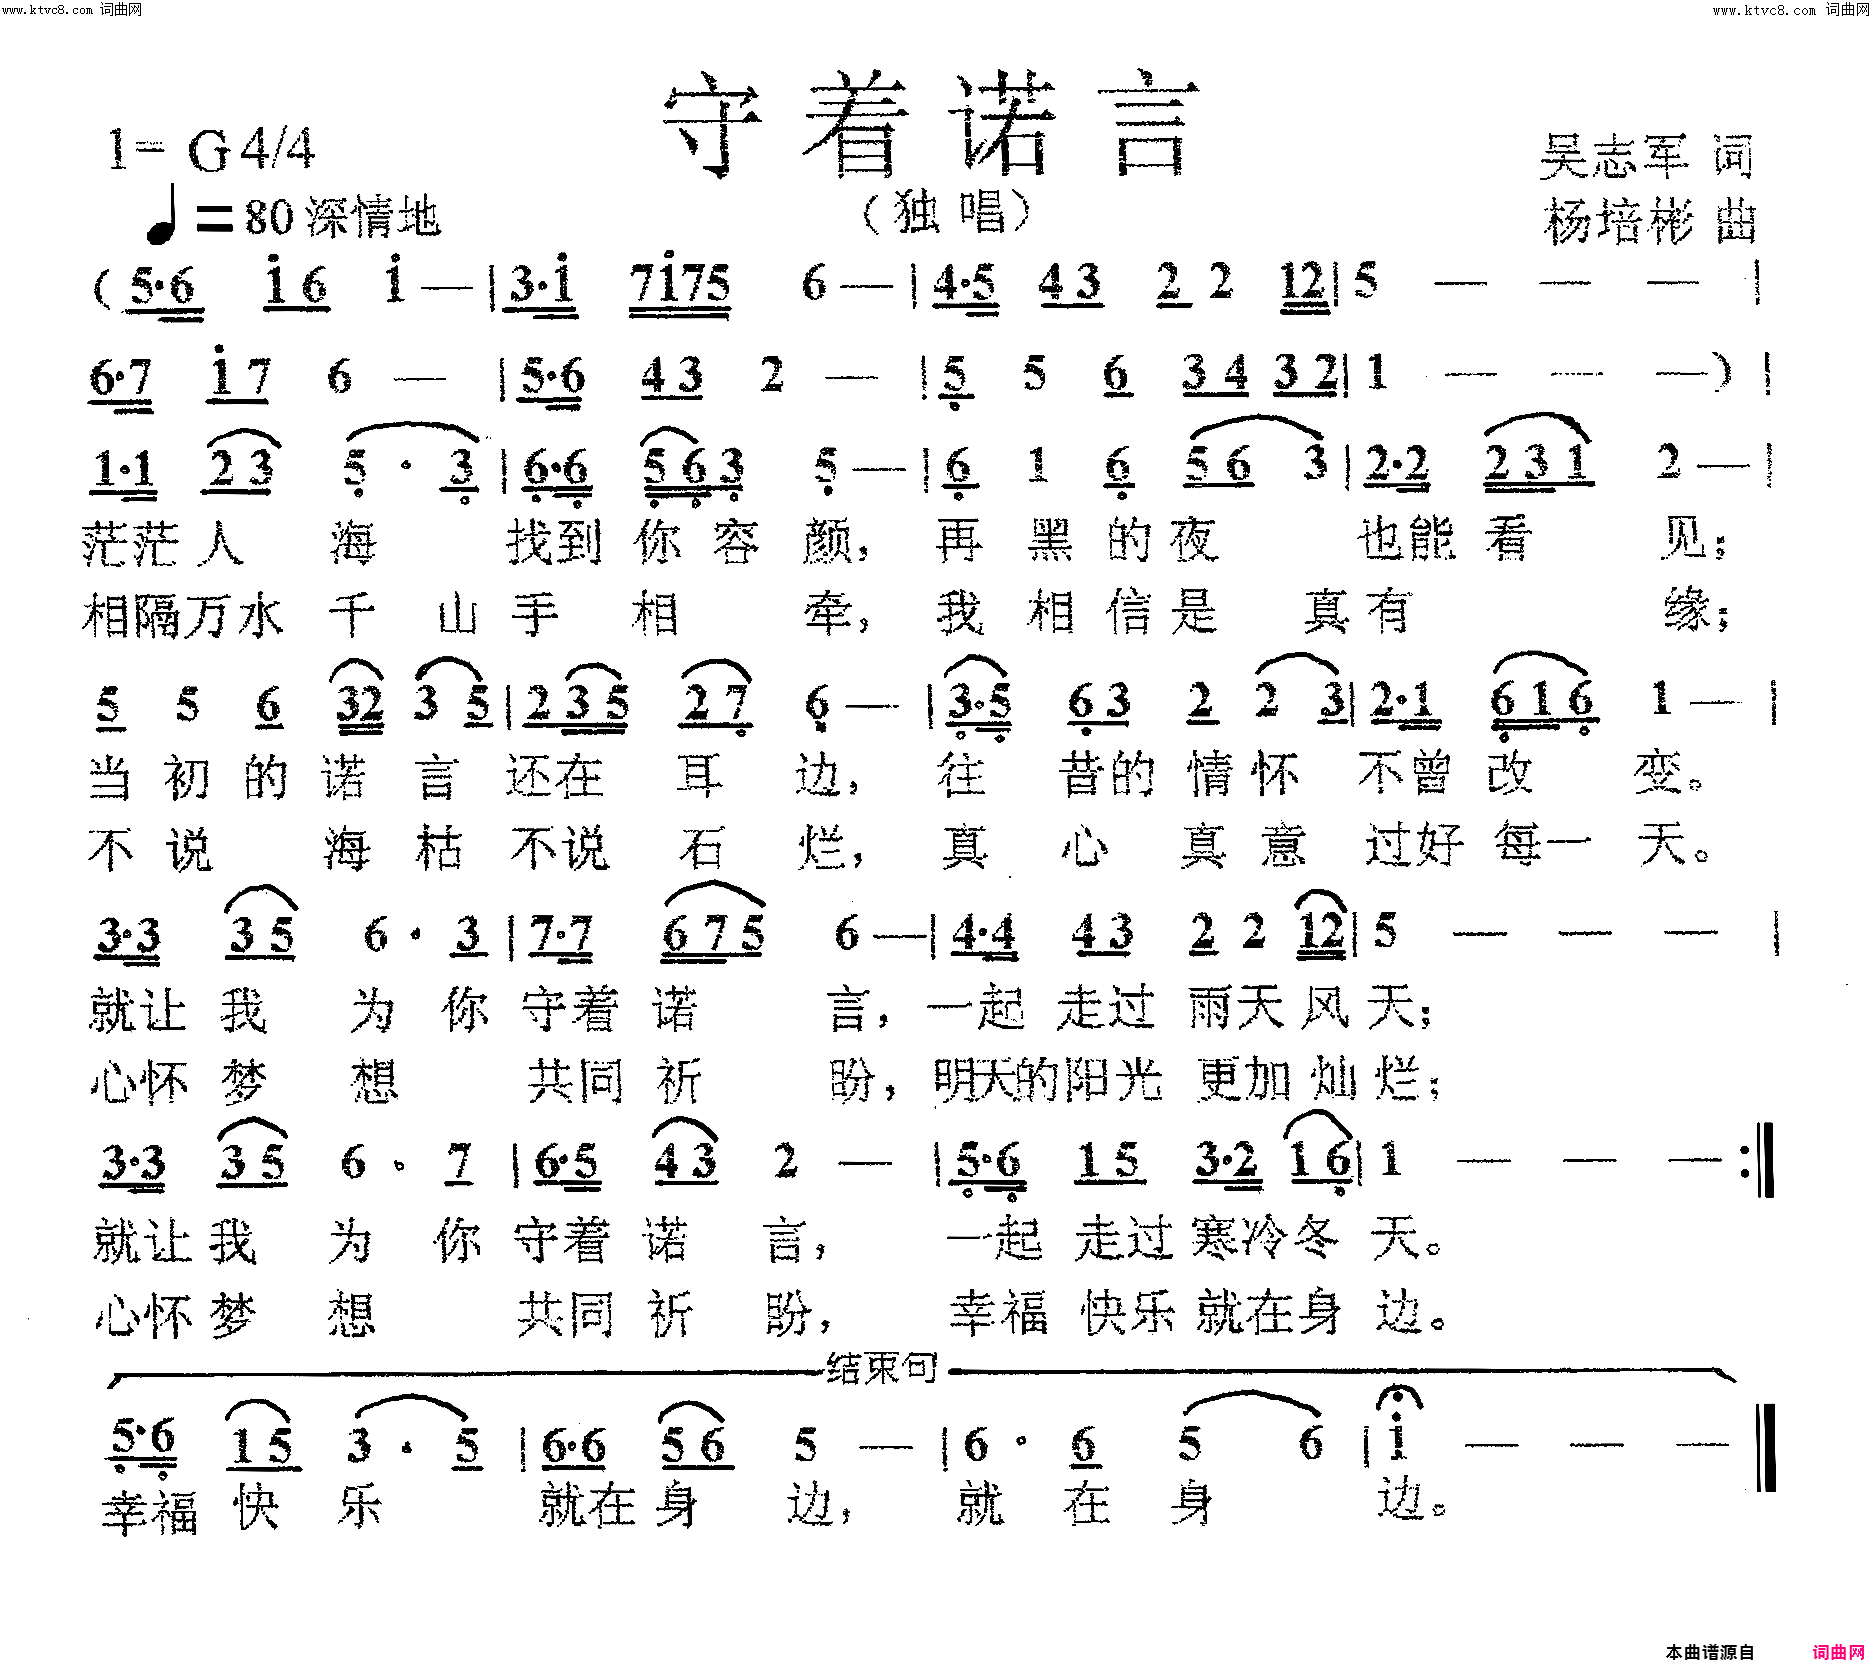 www.ktvc8.com 词曲网 www.ktvc8.com 词曲网
守着诺言
1= G 4/4
吴志军 词
♩=80 深情地
(独唱)
杨培彬 曲
(5·6 i6 i — | 3·i 7i75 6 — | 4·5 43 2 2 12 | 5 — — — |
6·7 i7 6 — | 5·6 43 2 — | 5 5 6 34 32 | 1 — — —) |
1·1 23 5· 3 | 6·6 563 5 — | 6 1 6 56 3 | 2·2 231 2 — |
茫茫人 海 找到你容颜, 再黑的夜 也能看 见;
相隔万水千山手相 牵, 我相信是真有 缘;
5 5 6 32 3 5 | 235 27 6 — | 3·5 63 2 2 3 | 2·1 616 1 — |
当初的诺言还在耳边, 往昔的情怀 不曾改变。
不说 海枯不说石烂, 真心真意 过好每一天。
3·3 35 6· 3 | 7·7 675 6 — | 4·4 43 2 2 12 | 5 — — — |
就让我 为你守着诺 言, 一起走过雨天风天;
心怀梦 想 共同祈 盼, 明天的阳光更加灿烂;
3·3 35 6· 7 | 6·5 43 2 — | 5·6 15 3·2 16 | 1 — — — :‖
就让我 为你守着诺言, 一起走过寒冷冬天。
心怀梦想 共同祈盼, 幸福快乐就在身边。
结束句
5·6 15 3· 5 | 6·6 56 5 — | 6· 6 5 6 | i — — — ‖
幸福快乐 就在身边, 就在身 边。
本曲谱源自 词曲网